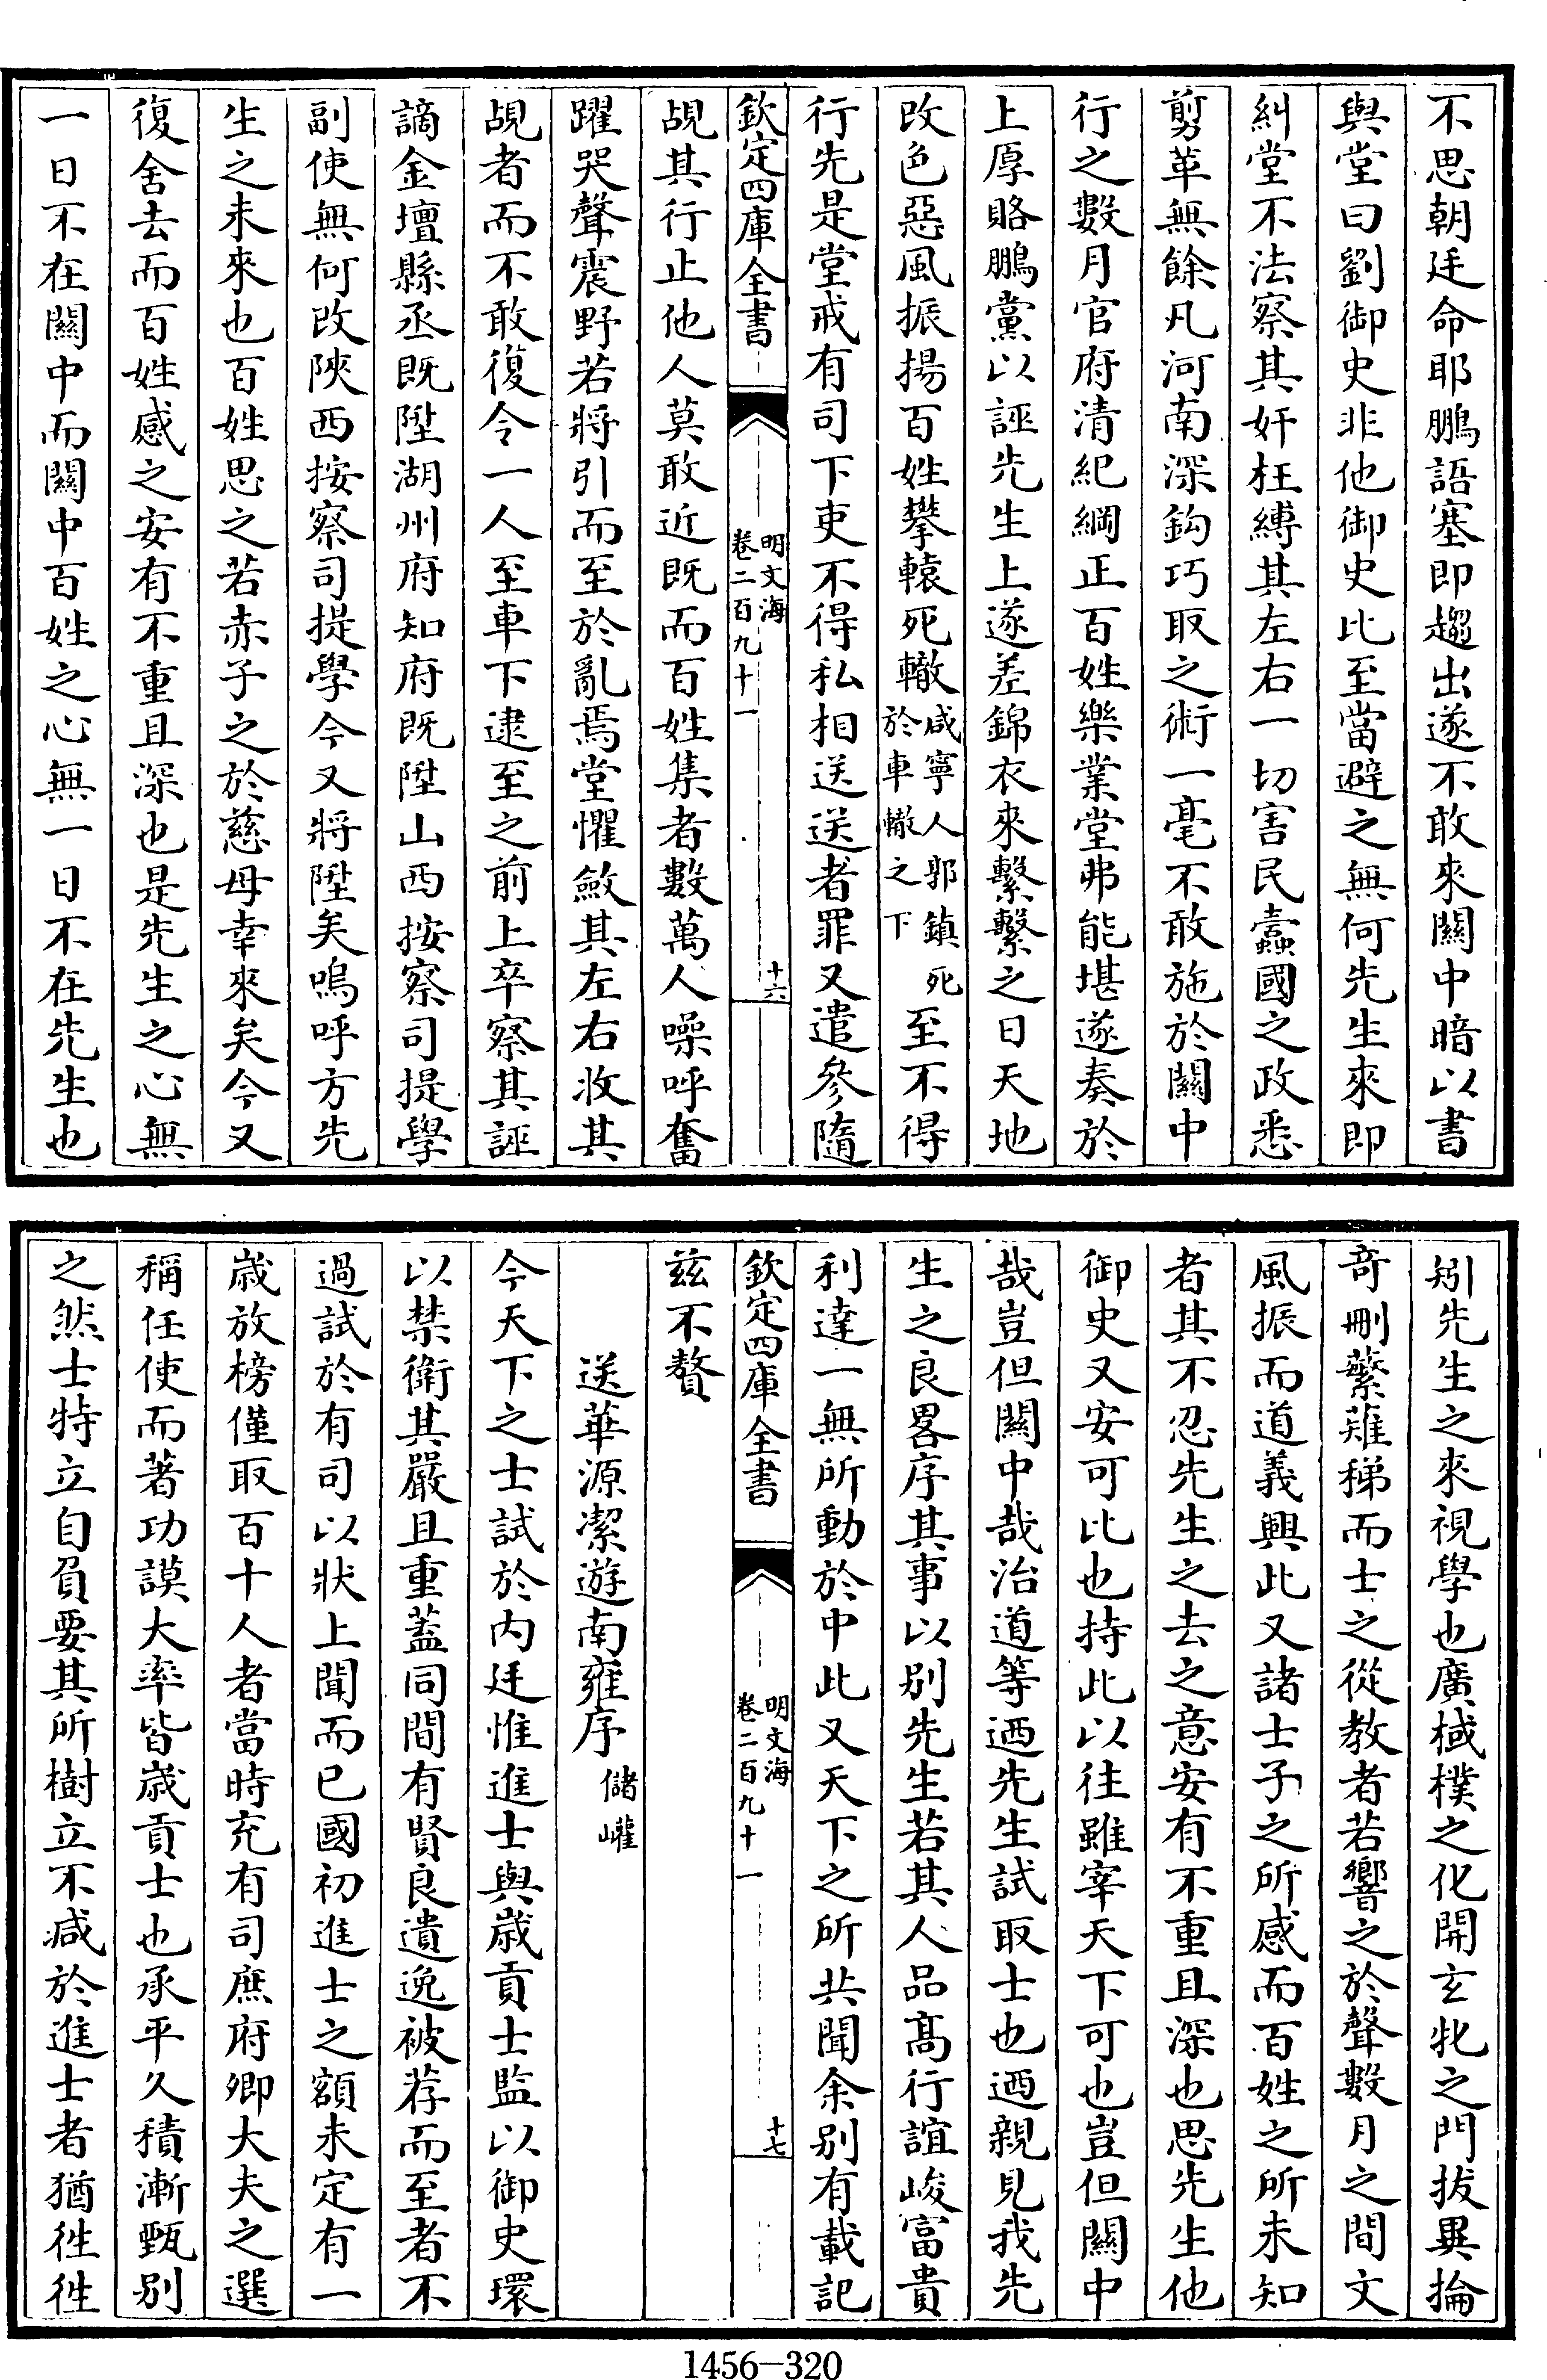 不思朝廷命耶鵬語塞即趨出遂不敢來關中暗以書
與堂曰劉御史非他御史比至當避之無何先生來即
糾堂不法察其奸枉縛其左右一切害民蠧國之政悉
剪革無餘凡河南深鈎巧取之術一毫不敢施於關中
行之數月官府清紀綱正百姓樂業堂弗能堪遂奏於
上厚賂鵬黨以誣先生上遂差錦衣來繫繫之日天地
改色惡風振揚百姓攀轅死轍咸寧人郭鎮死於車轍之下至不得
行先是堂戒有司下吏不得私相送送者罪又遣參隨
欽定四庫全書
明文海
卷二百九十一
十六
覘其行止他人莫敢近既而百姓集者數萬人噪呼奮
躍哭聲震野若將引而至於亂焉堂懼斂其左右收其
覘者而不敢復令一人至車下逮至之前上卒察其誣
謫金壇縣丞既陞湖州府知府既陞山西按察司提學
副使無何改陝西按察司提學今又將陞矣嗚呼方先
生之未來也百姓思之若赤子之於慈母幸來矣今又
復舍去而百姓感之安有不重且深也是先生之心無
一日不在關中而關中百姓之心無一日不在先生也
矧先生之來視學也廣棫樸之化開玄牝之門拔異掄
奇刪蘩薙稊而士之從教者若響之於聲數月之間文
風振而道義興此又諸士子之所感而百姓之所未知
者其不忍先生之去之意安有不重且深也思先生他
御史又安可比也持此以往雖宰天下可也豈但關中
哉豈但關中哉治道等迺先生試取士也迺親見我先
生之良畧序其事以别先生若其人品髙行誼峻富貴
利達一無所動於中此又天下之所共聞余别有載記
欽定四庫全書
明文海
卷二百九十一
十七
兹不贅
送華源潔遊南雍序 儲巏
今天下之士試於内廷惟進士與歲貢士監以御史環
以禁衛其嚴且重蓋同間有賢良遺逸被荐而至者不
過試於有司以狀上聞而已國初進士之額未定有一
歲放榜僅取百十人者當時充有司庶府卿大夫之選
稱任使而著功謨大率皆歲貢士也承平久積漸甄别
之然士特立自負要其所樹立不减於進士者猶徃徃
1456—320